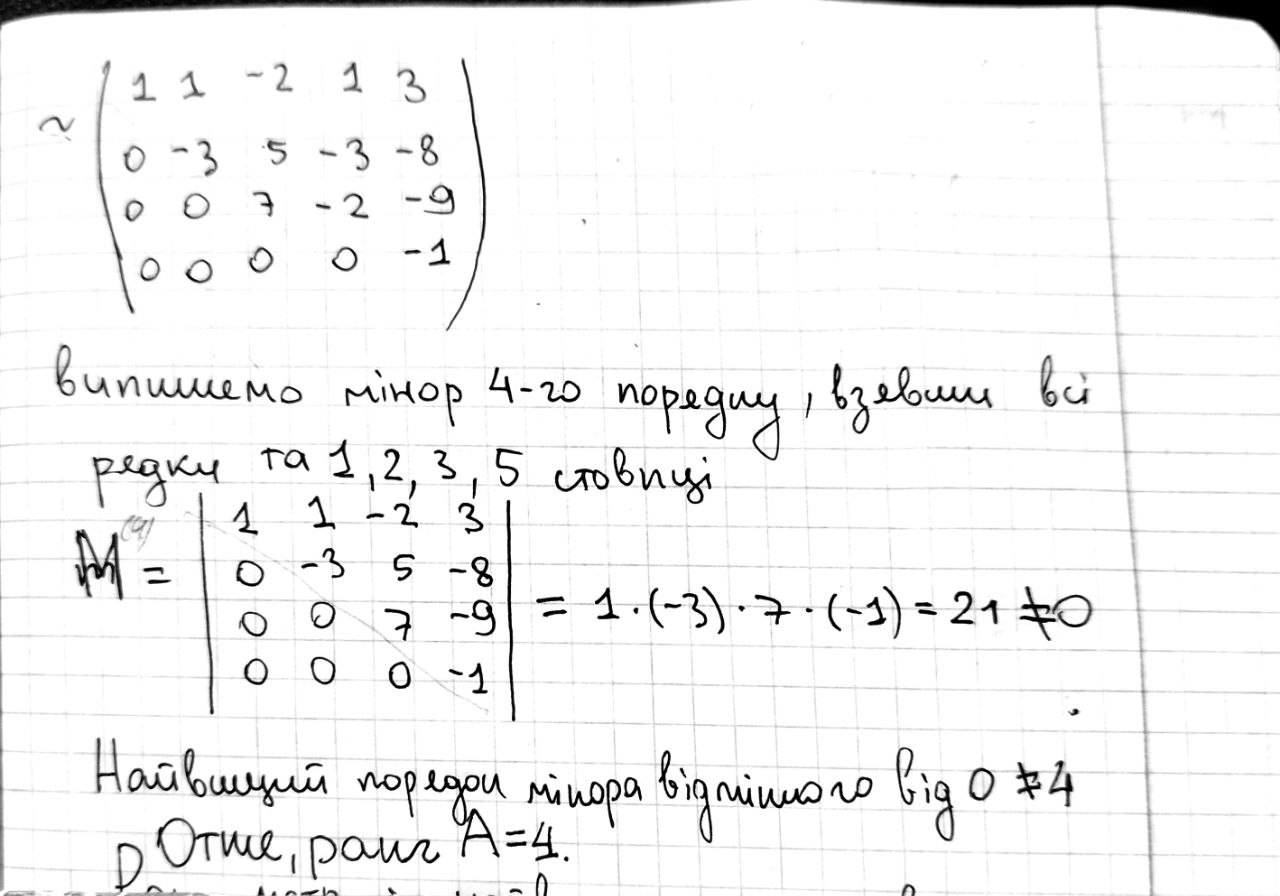 ~ ( 1 1 -2 1 3
0 -3 5 -3 -8
0 0 7 -2 -9
0 0 0 0 -1 )
випишемо мінор 4-го порядку, взявши всі
рядки та 1, 2, 3, 5 стовпці
| 1 1 -2 3 |
M⁽⁴⁾ = | 0 -3 5 -8 | = 1·(-3)·7·(-1) = 21 ≠ 0
| 0 0 7 -9 |
| 0 0 0 -1 |
Найвищий порядок мінора відмінного від 0 ≠ 4
Отже, ранг A = 4.